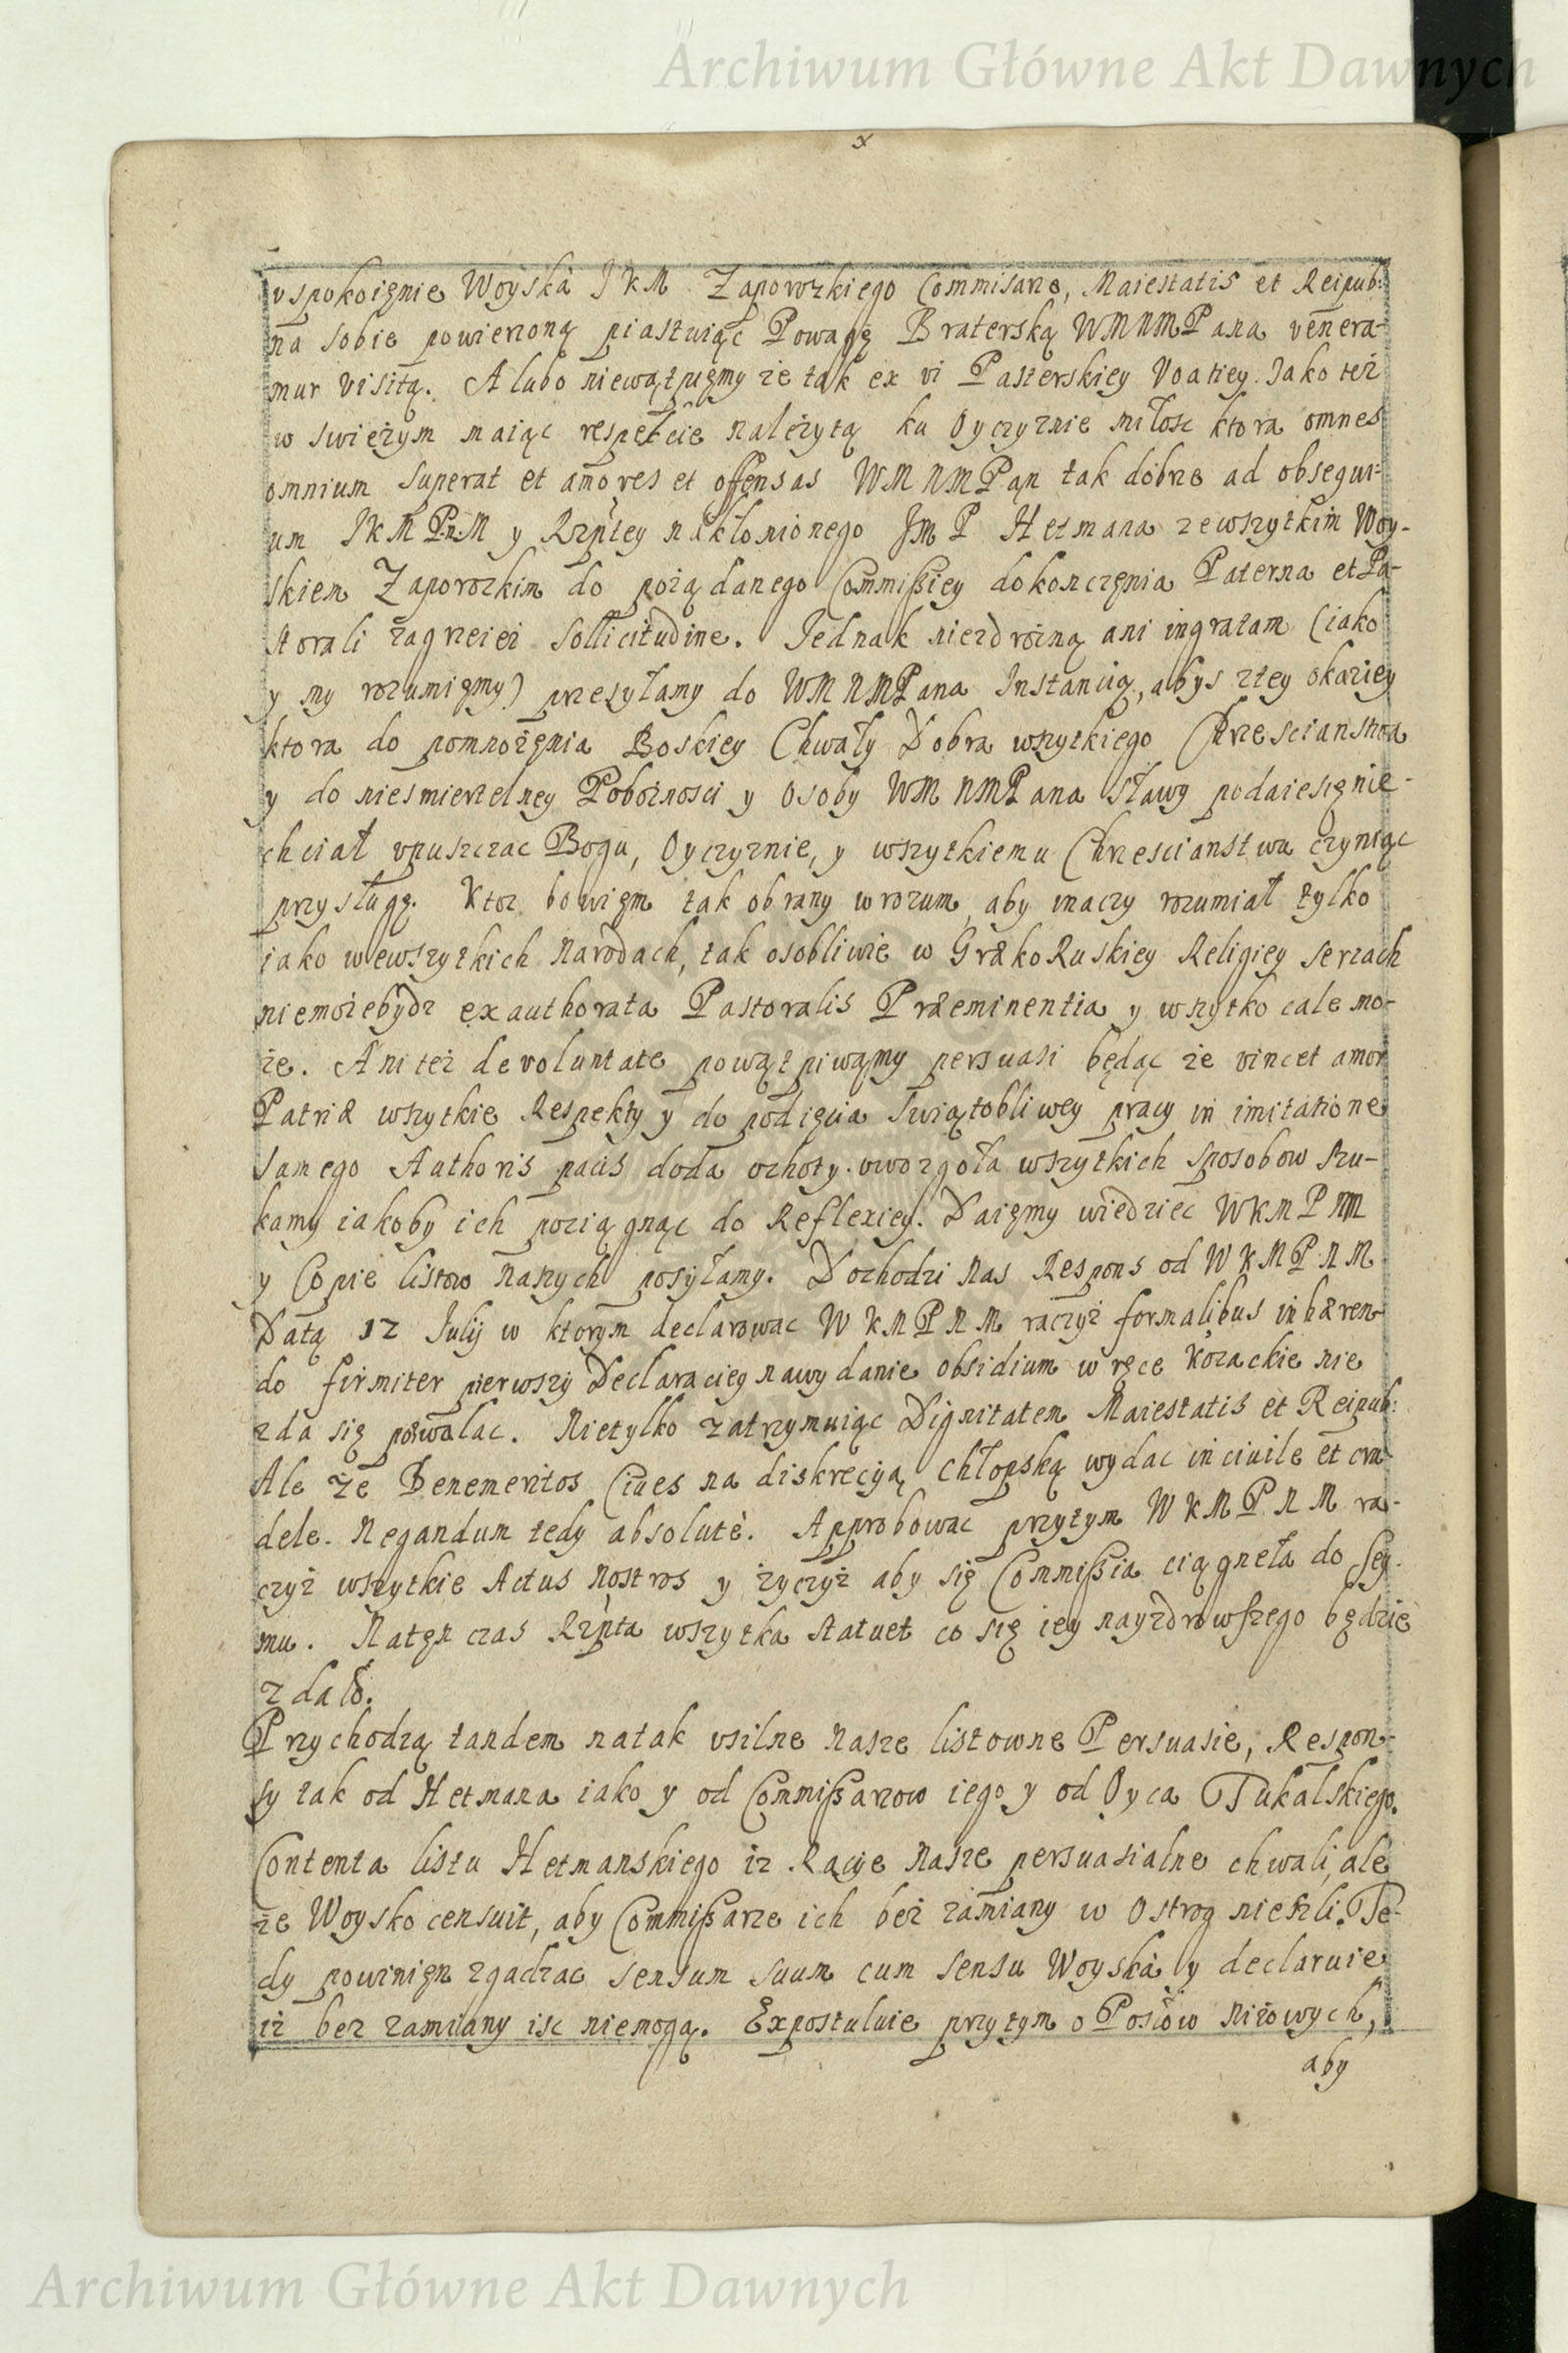 Archiwum Główne Akt Dawnych
vspokoięnie Woyska JKM Zaporozkiego Commisarze, Maiestatis et Reipub:
na sobie powierzoną piastuiąc Powagę Braterską WMNMPana venera-
mur visitą. A lubo niewątpięmy że tak ex vi Pasterskiey Jako też
w swieżym maiąc respekcie należytą ku Oyczyznie miłosc ktora omnes
omnium superat et amores et offensas WMNMPąn tak dobrze ad obsequi-
um JKMPnM y Rzptey nakłonionego JmP Hetmana zewszytkim Woy-
skiem Zaporozkim do pożądanego Commissiey dokonczęnia Paterna et Pa-
storali zagrzeiesz sollicitudine. Jednak niezdrożną ani ingratam (iako
y my rozumięmy) przesyłamy do WMNMPana Instancią, abys ztey okaziey
ktora do pomnożęnia Boskiey Chwały Dobra wszytkiego Chrzescianstwa
y do niesmiertelney Pobożnosci y Osoby WMNMPana sławy podaiesię nie-
chciał vpuszczac Bogu, Oyczyznie, y wszytkiemu Chrzescianstwu czyniąc
przysługę. Ktoz bowięm tak obrany wrozum, aby inaczy rozumiał tylko
iako wewszytkich Narodach, tak osobliwie w GrækoRuskiey Religiey sercach
niemożebydz exauthorata Pastoralis Præeminentia y wszytko cale mo-
że. Ani też de voluntate powątpiwamy persuasi będąc że vincet amor
Patriæ wszytkie Respekty y do podięcia swiątobliwey pracy in imitatione
samego Authoris pacis doda ochoty. vwozgoła wszytkich sposobow szu-
kamy iakoby ich pociągnąc do Reflexiey. Daięmy wiedziec WKMPNM
y Copie listow naszych posyłamy. Dochodzi nas Respons od WKMPNM
Datą 12 Julij w ktorym declarowac WKMPNM raczysz formalibus inhæren-
do firmiter pierwszy Declaraciey nawydanie obsidium w ręce Kozackie nie
zda się pozwalac. Nietylko zatrzymuiąc Dignitatem Maiestatis et Reipub:
Ale że Benemeritos Ciues na diskrecyą chłopską wydac inciuile et cru-
dele. Negandum tedy absolutè. Approbowac przytym WKMPNM ra-
czysz wszytkie Actus Nostros y życzysz aby się Commissia ciągneła do Sey-
mu. Natęn czas Rzpta wszytka statuet co się iey nayzdrowszego będzie
zdało.
Przychodzą tandem natak vsilne Nasze listowne Persuasie, Respon-
sy tak od Hetmana iako y od Commissarzow iego y od Oyca Tukalskiego.
Contenta listu Hetmanskiego iz Racye Nasze persuasialne chwali, ale
że Woysko censuit, aby Commissarze ich bez zamiany w Ostrog nieszli. Te-
dy powinięn zgadzac sensum suum cum sensu Woyska y declaruie
iż bez zamiany isc niemogą. Expostuluie przytym o Posłow Niżowych,
aby
Archiwum Główne Akt Dawnych